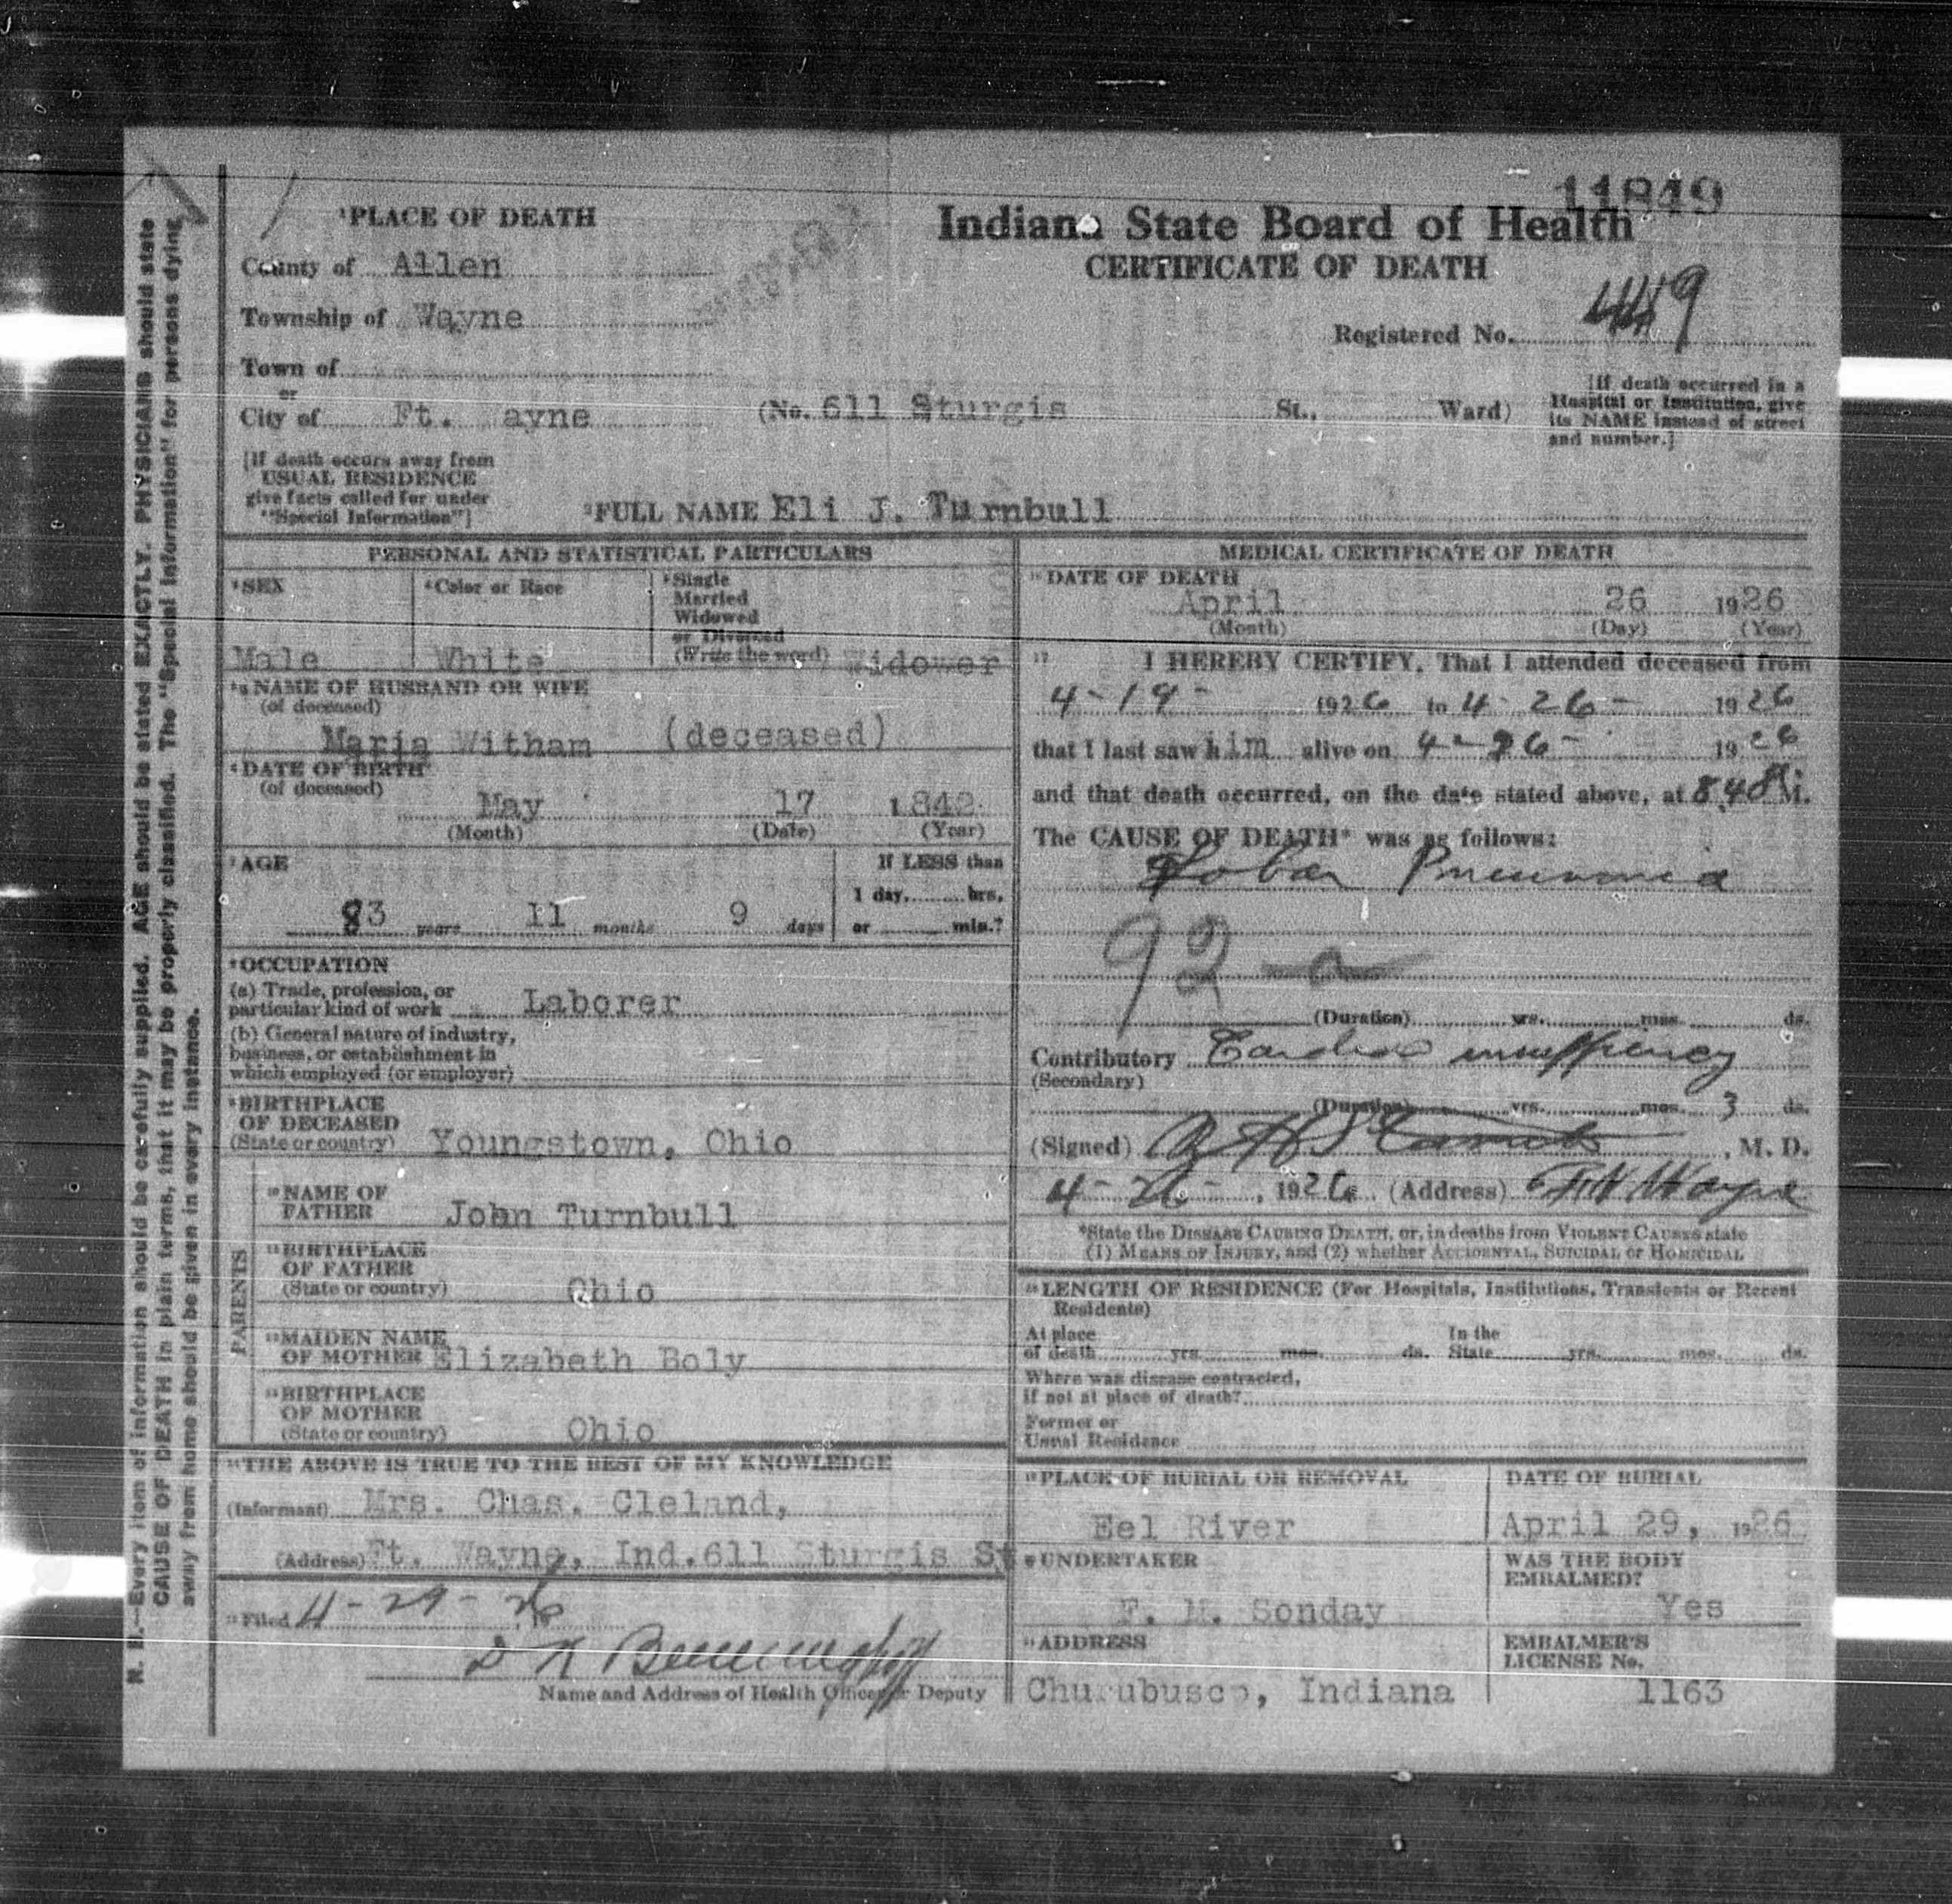 11849
¹PLACE OF DEATH
Indiana State Board of Health
CERTIFICATE OF DEATH
County of Allen
Township of Wayne
Registered No. 449
Town of
or
City of Ft. ayne (No. 611 Sturgis St., Ward)
[If death occurred in a
Hospital or Institution, give
its NAME instead of street
and number.]
[If death occurs away from
USUAL RESIDENCE
give facts called for under
"Special Information"]
²FULL NAME Eli J. Turnbull
PERSONAL AND STATISTICAL PARTICULARS
³SEX
Male
⁴Color or Race
White
⁵Single
Married
Widowed
or Divorced
(Write the word) Widower
NAME OF HUSBAND OR WIFE
(of deceased)
Maria Witham (deceased)
⁶DATE OF BIRTH
(of deceased)
May 17 1842
(Month) (Date) (Year)
⁷AGE
If LESS than
1 day, hrs.
83 years 11 months 9 days or min.?
⁸OCCUPATION
(a) Trade, profession, or
particular kind of work Laborer
(b) General nature of industry,
business, or establishment in
which employed (or employer)
⁹BIRTHPLACE
OF DECEASED
(State or country) Youngstown, Ohio
PARENTS
¹⁰NAME OF
FATHER John Turnbull
¹¹BIRTHPLACE
OF FATHER
(State or country) Ohio
¹²MAIDEN NAME
OF MOTHER Elizabeth Boly
¹³BIRTHPLACE
OF MOTHER
(State or country) Ohio
¹⁴THE ABOVE IS TRUE TO THE BEST OF MY KNOWLEDGE
(Informant) Mrs. Chas. Cleland,
(Address) Ft. Wayne, Ind. 611 Sturgis St
¹⁵Filed 4-29-26
Name and Address of Health Officer or Deputy
MEDICAL CERTIFICATE OF DEATH
¹⁶DATE OF DEATH
April 26 1926
(Month) (Day) (Year)
¹⁷ I HEREBY CERTIFY, That I attended deceased from
4-19- 1926 to 4-26- 1926
that I last saw him alive on 4-26- 1926
and that death occurred, on the date stated above, at 8,48 M.
The CAUSE OF DEATH* was as follows:
Lobar Pneumonia
92 a
(Duration) yrs. mos. ds.
Contributory Cardiac insuffiency
(Secondary)
(Duration) yrs. mos. 3 ds.
(Signed) , M. D.
4-26-, 1926 (Address) Ft Wayne
*State the DISEASE CAUSING DEATH, or, in deaths from VIOLENT CAUSES state
(1) MEANS OF INJURY, and (2) whether ACCIDENTAL, SUICIDAL or HOMICIDAL
¹⁸LENGTH OF RESIDENCE (For Hospitals, Institutions, Transients or Recent
Residents)
At place
of death yrs. mos. ds. In the
State yrs. mos. ds.
Where was disease contracted,
if not at place of death?
Former or
Usual Residence
¹⁹PLACE OF BURIAL OR REMOVAL
Eel River
DATE OF BURIAL
April 29, 1926
²⁰UNDERTAKER
F. M. Sonday
WAS THE BODY
EMBALMED?
Yes
²¹ADDRESS
Churubusco, Indiana
EMBALMER'S
LICENSE No.
1163
N. B.—Every item of information should be carefully supplied. AGE should be stated EXACTLY. PHYSICIANS should state
CAUSE OF DEATH in plain terms, that it may be properly classified. The "Special Information" for persons dying
away from home should be given in every instance.